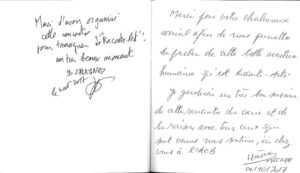 Merci d'avoir organisé
cette rencontre
pour témoigner de "Raconte Arts"
un très beau moment
4 oct 2017
Merci pour votre chaleureux
accueil afin de nous permettre
de parler de cette belle aventure
humaine qu'est Raconte-Arts.
Je garderai un très bon souvenir
de cette rencontre du cœur et de
la raison avec tous ceux qui
sont venus nous soutenir, ici chez
vous à l'
04/10/2017